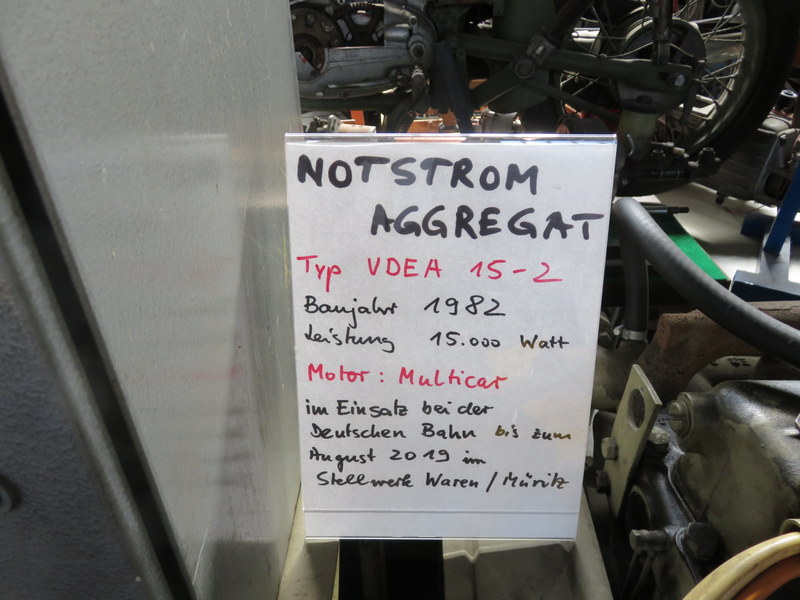 NOTSTROM
AGGREGAT
Typ VDEA 15-2
Baujahr 1982
Leistung 15.000 Watt
Motor: Multicar
im Einsatz bei der
Deutschen Bahn bis zum
August 2019 im
Stellwerk Waren / Müritz